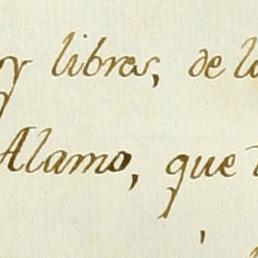 y libros, de lo
Alamo, que